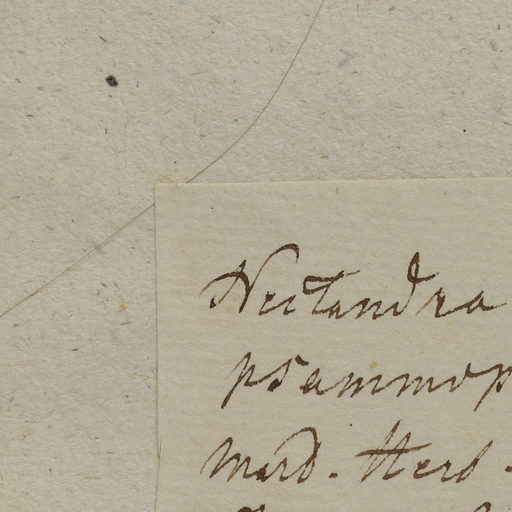 Nectandra
psammop
Mard. Herb.